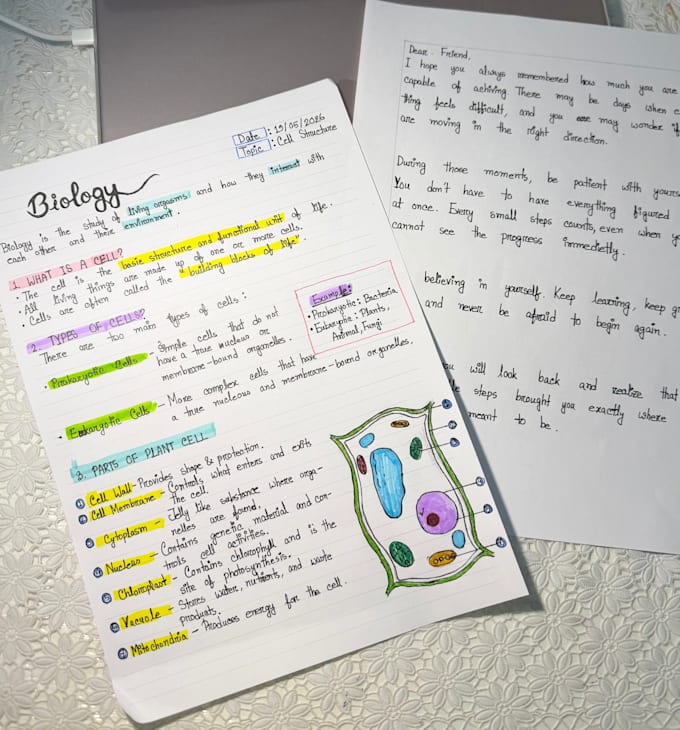 Date : 19/05/2026
Topic : Cell Structure
Biology
Biology is the study of living orgasms and how they interact with
each other and there environment.
1. WHAT IS A CELL?
• The cell is the basic structure and functional unit of life.
• All living things are made up of one or more cells.
• Cells are often called the "building blocks of life".
2. TYPES OF CELLS?
There are too main types of cells :
• Prokaryotic Cells – Simple cells that do not
have a true nucleus or
membrane-bound organelles.
• Eukaryotic Cells – More complex cells that have
a true nucleous and membrane-bound organelles.
Example:
• Prokaryotic : Bacteria
• Eukaryotic : Plants,
Animal, Fungi
3. PARTS OF PLANT CELL
① Cell Wall – Provides shape & protection.
② Cell Membrane – Controls what enters and exits
the cell.
③ Cytoplasm – Jelly like substance where orga-
nelles are found.
④ Nucleus – Contains genetic material and con-
trols cell activities.
⑤ Chloroplast – Contains chlorophyll and is the
site of photosynthesis.
⑥ Vacuole – Stores water, nutrients, and waste
products.
⑦ Mitochondria – Produces energy for the cell.
Dear Friend,
I hope you always remembered how much you are
capable of achiving There may be days when
thing feels difficult, and you may wonder if
are moving in the right direction.
During those moments, be patient with
You don't have to have everything figured
at once. Every small steps counts, even when
cannot see the progress immedietly.
believing in yourself. Keep learning, keep
and never be afraid to begin again.
will look back and realize that
steps brought you exactly where
meant to be.